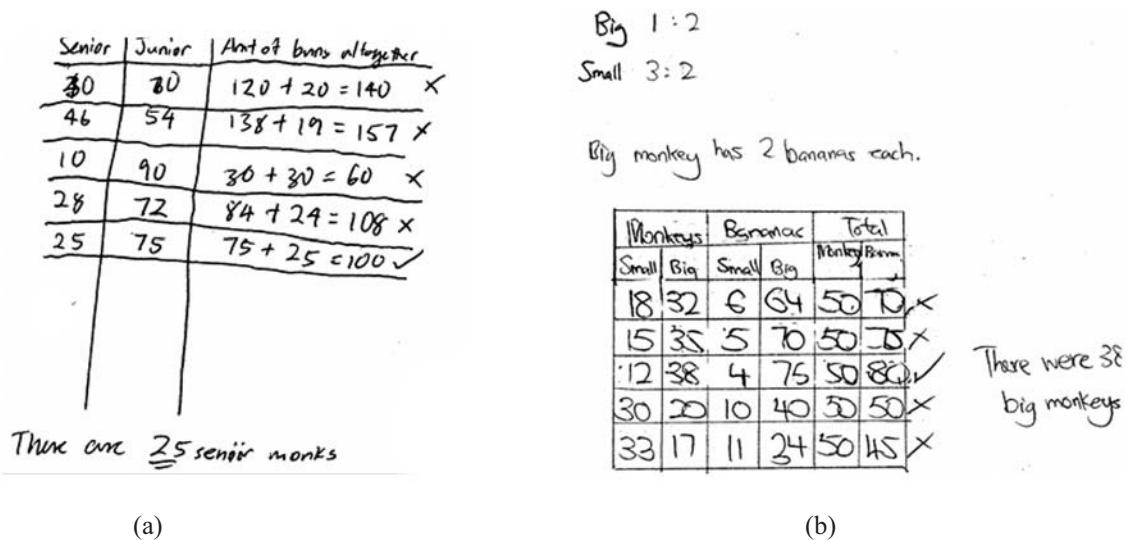 Senior Junior Amt of buns altogether
120 + 20 = 140 ×
46 54 138 + 19 = 157 ×
10 90 30 + 30 = 60 ×
28 72 84 + 24 = 108 ×
25 75 75 + 25 = 100 ✓
There are 25 senior monks
(a)
Big 1 : 2
Small 3 : 2
Big monkey has 2 bananas each.
Monkeys Bananac Total
Small Big Small Big Monkey
18 32 6 64 50 70 ×
15 35 5 70 50 75 ×
12 38 4 75 50 80 ✓
30 20 10 40 50 50 ×
33 17 11 34 50 45 ×
There were 38
big monkeys
(b)